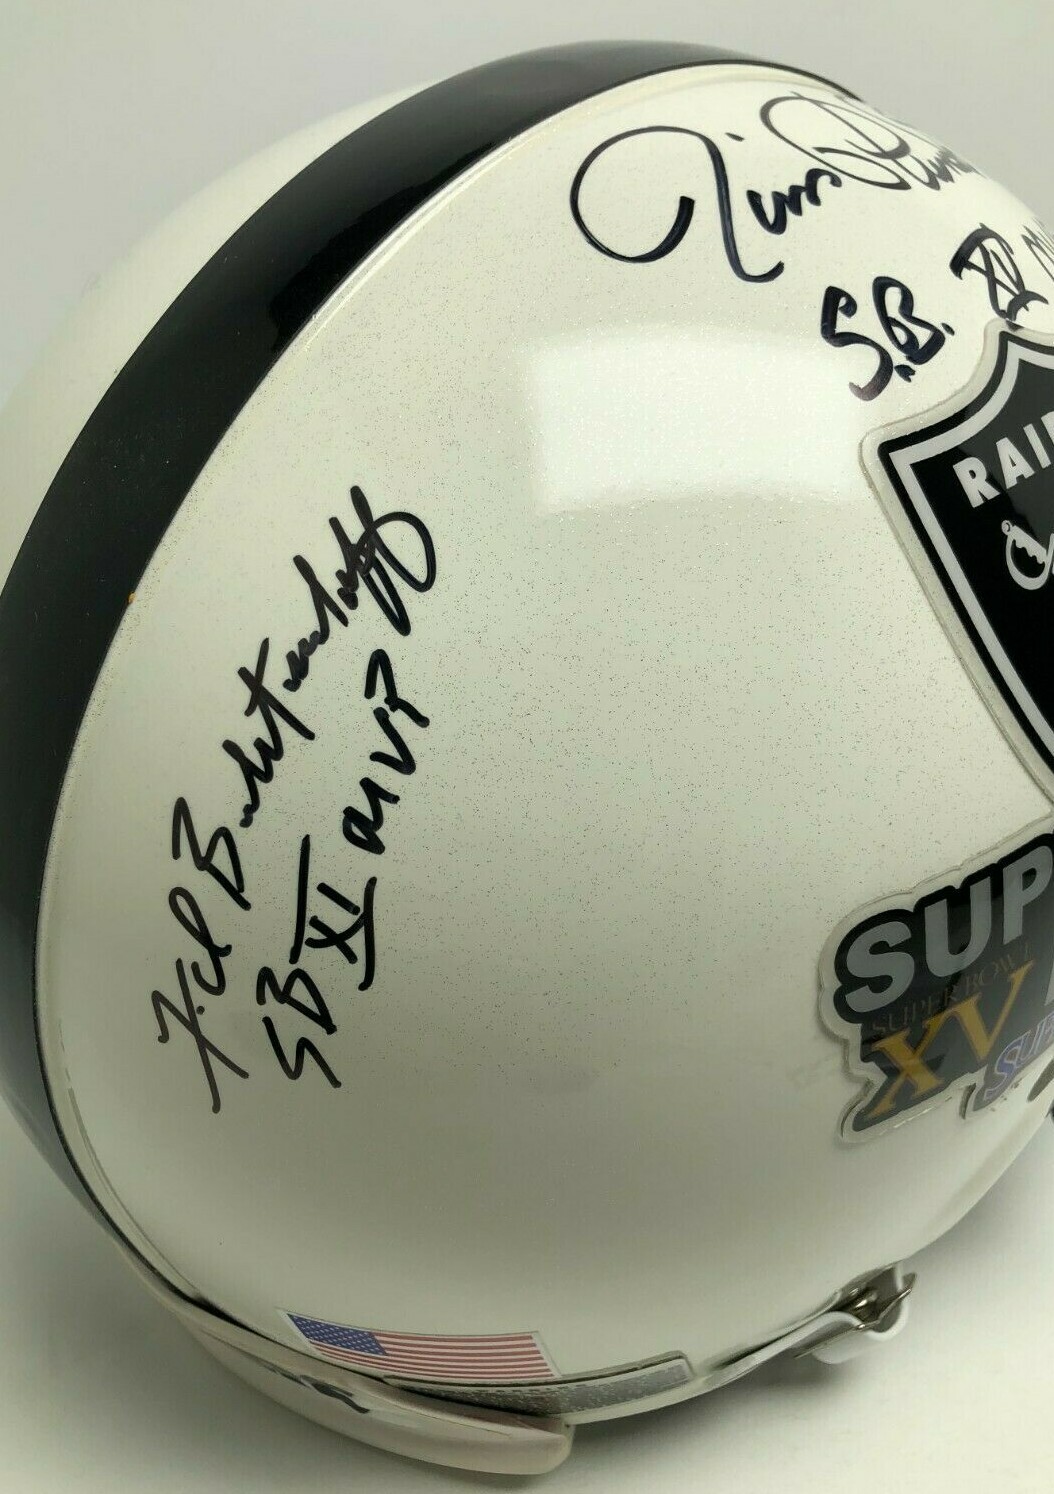 Jim Plunk
S.B. XV M
RAI
Fred Biletnikoff
SB XI MVP
SUP
SUPER BOWL
XV
SUP